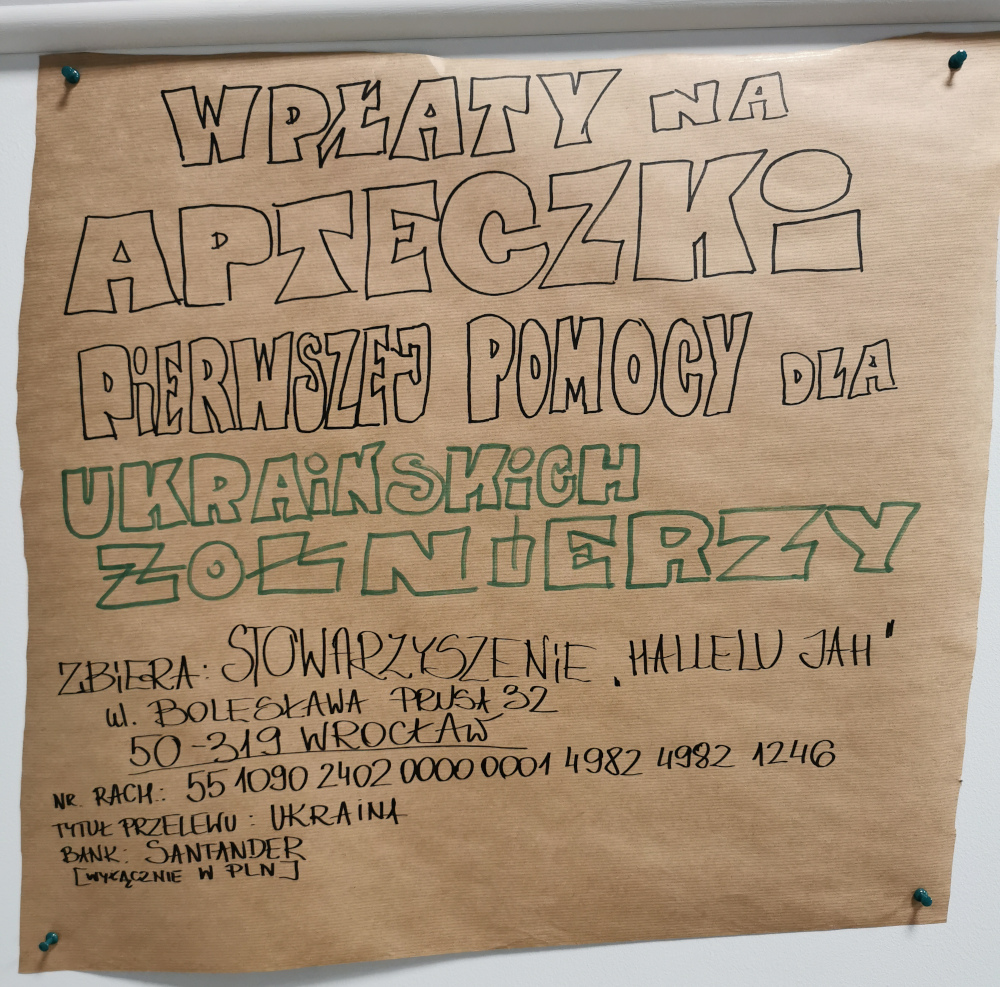 WPŁATY NA
APTECZKi
PiERWSZEJ POMOCY DLA
UKRAiŃSKiCH
ŻOŁNiERZY
ZBiERA: STOWARZYSZENiE „HALLELU JAH"
ul. BOLESŁAWA PRUSA 32
50-319 WROCŁAW
NR. RACH.: 55 1090 2402 0000 0001 4982 4982 1246
TYTUŁ PRZELEWU: UKRAiNA
BANK: SANTANDER
[WYŁĄCZNIE W PLN]